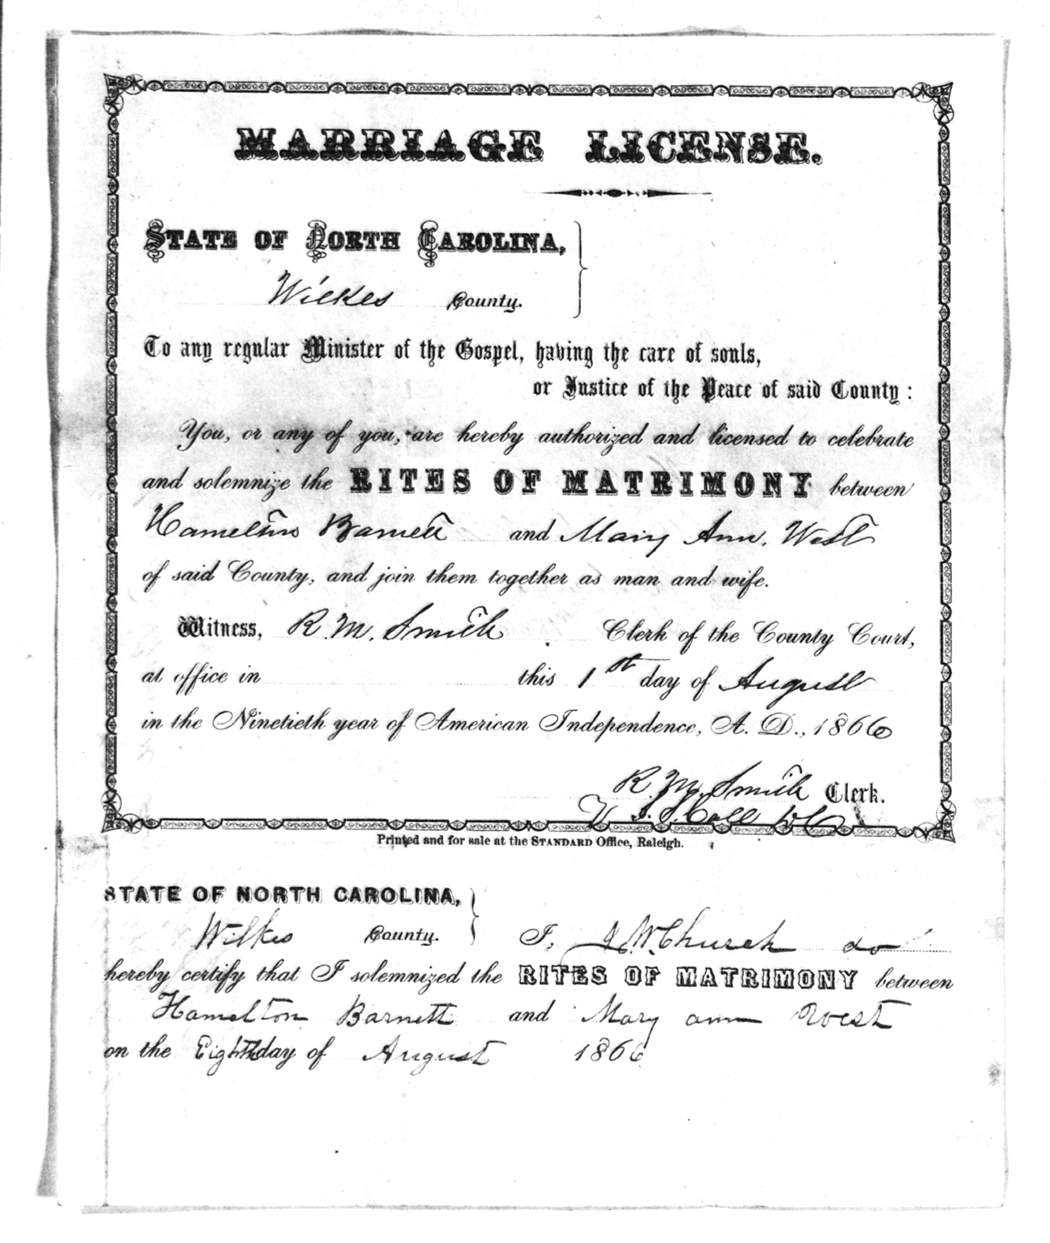 MARRIAGE LICENSE.
STATE OF NORTH CAROLINA,
Wilkes County.
To any regular Minister of the Gospel, having the care of souls,
or Justice of the Peace of said County:
You, or any of you, are hereby authorized and licensed to celebrate
and solemnize the RITES OF MATRIMONY between
Hamelton Barnett and Mary Ann. West
of said County, and join them together as man and wife.
Witness, R. M. Smith Clerk of the County Court,
at office in this 1st day of August
in the Ninetieth year of American Independence, A. D., 1866
R. M. Smith Clerk.
Call
Printed and for sale at the STANDARD Office, Raleigh.
STATE OF NORTH CAROLINA,
Wilkes County. I, J W. Church do
hereby certify that I solemnized the RITES OF MATRIMONY between
Hamelton Barnett and Mary ann West
on the Eighth day of August 1866